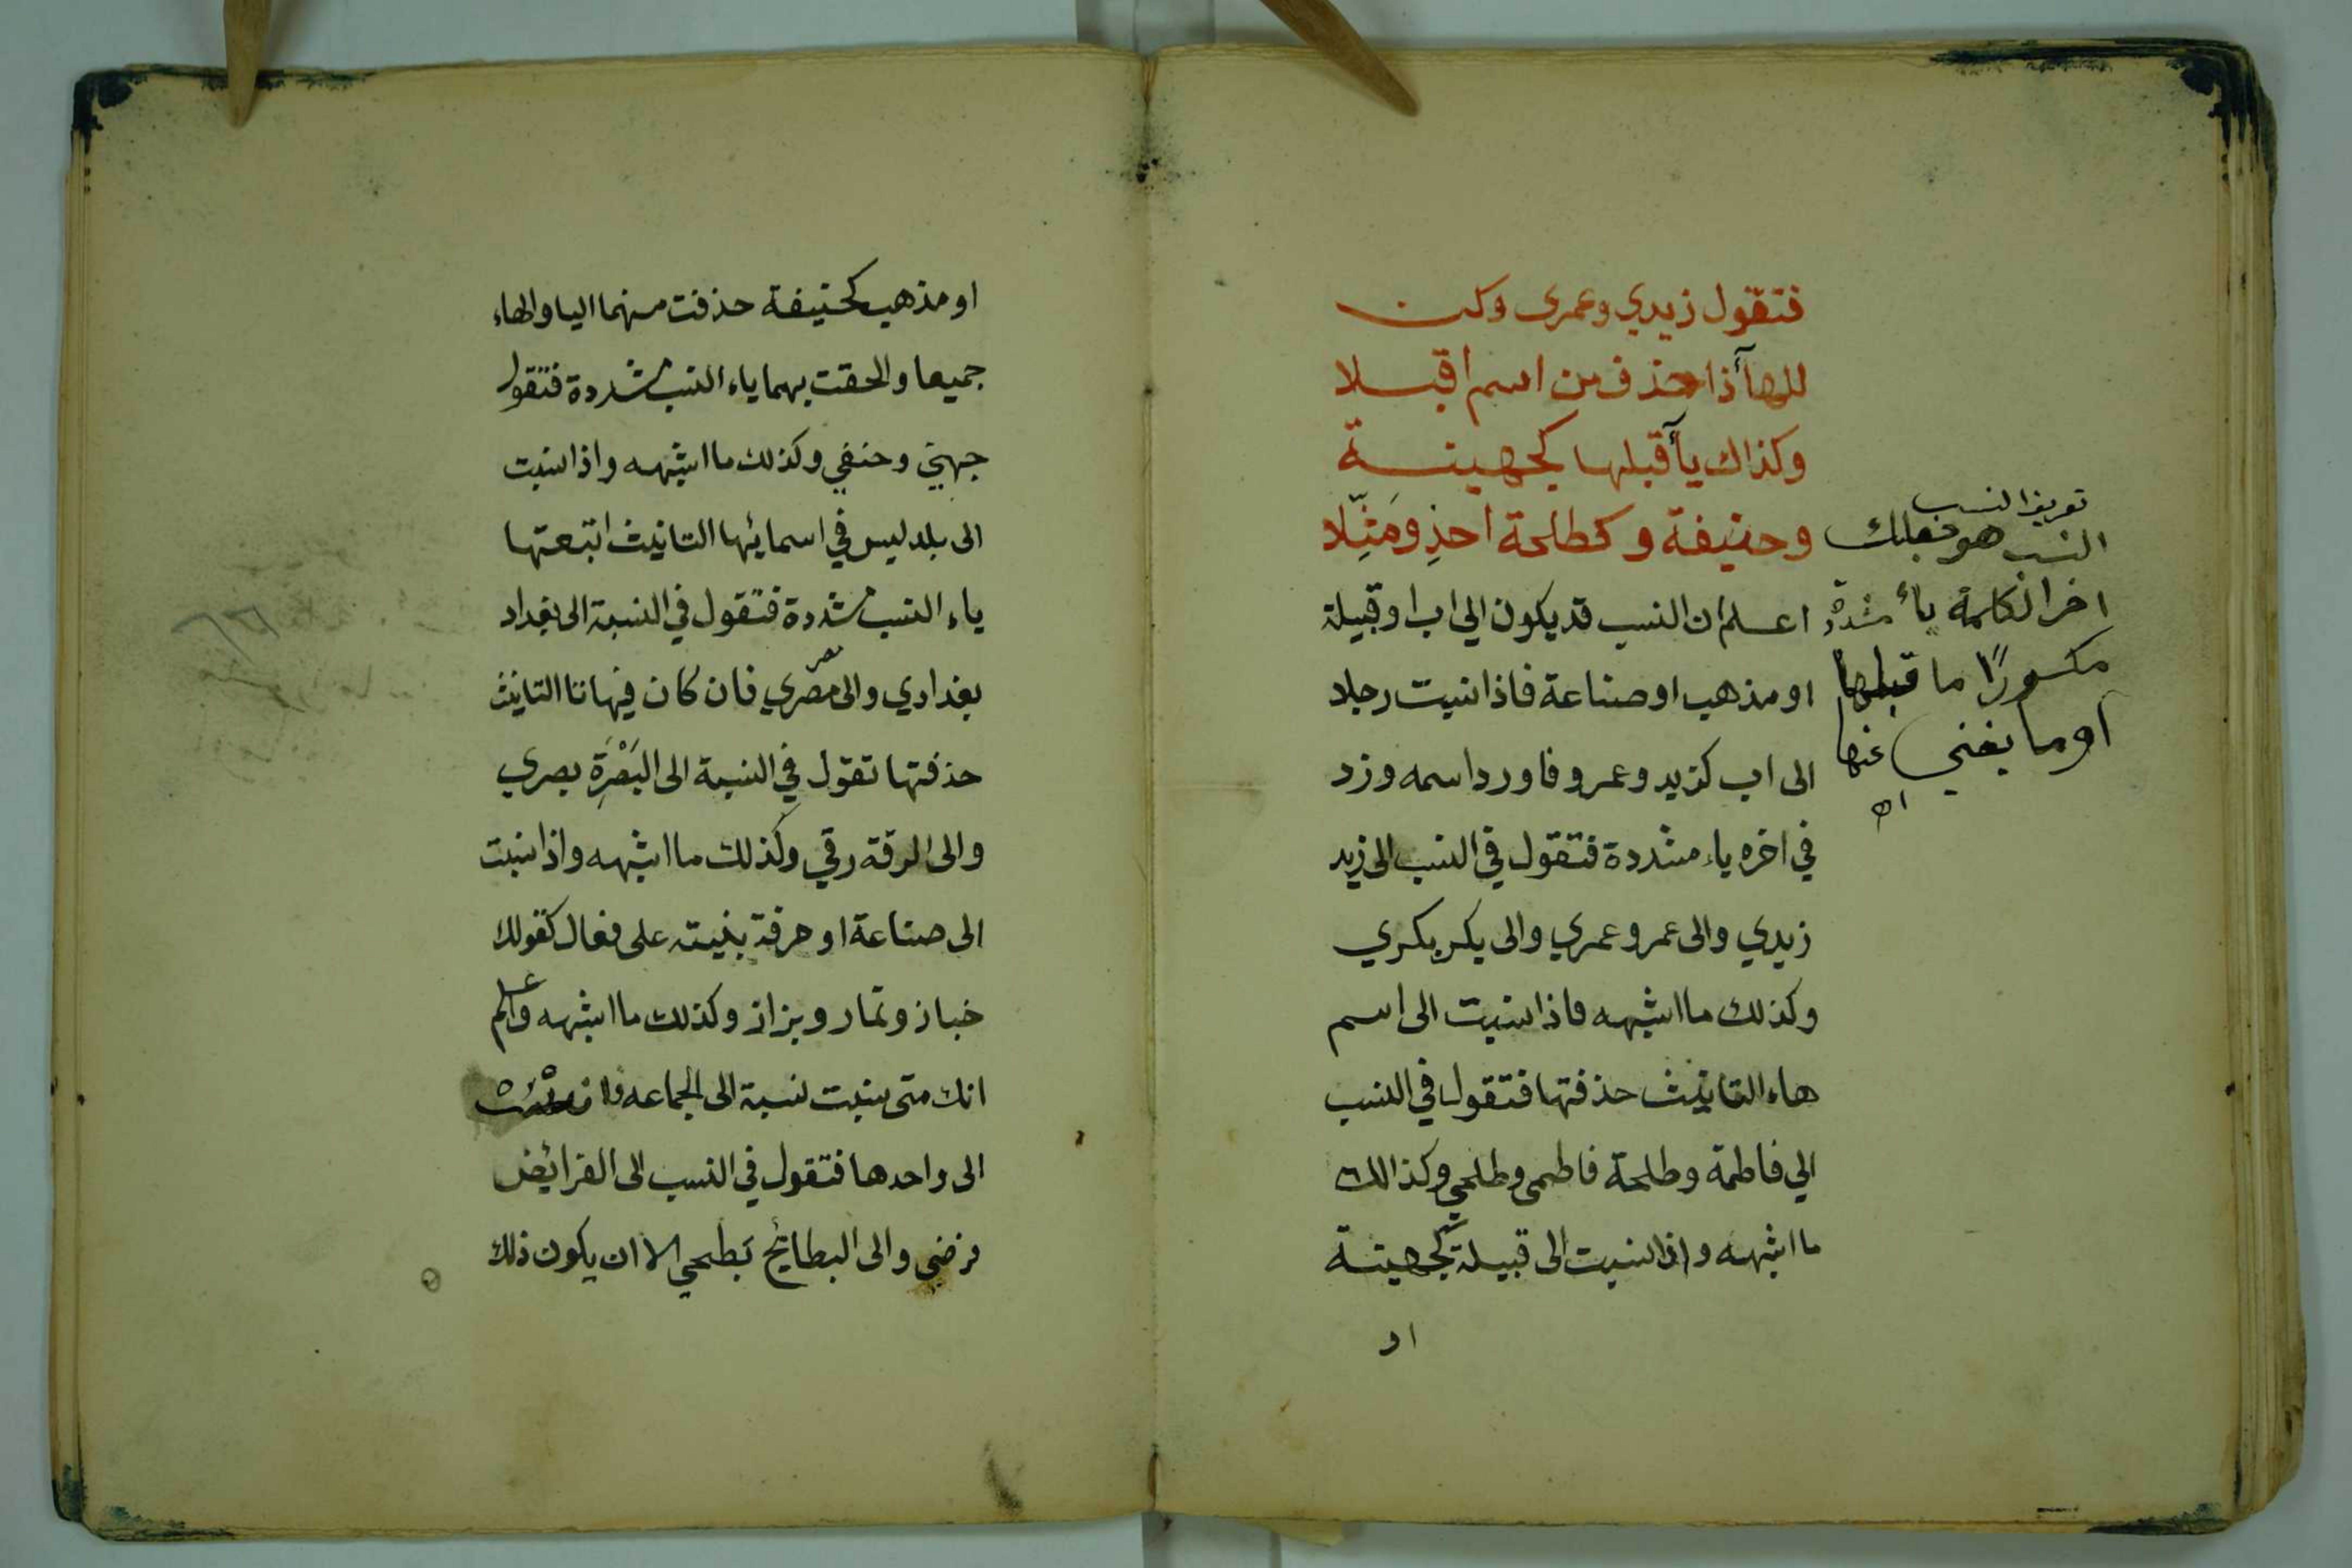 فتقول زيدي وعمرى وكن
للهاآذا حذف من اسم اقبلا
وكذاك يآ قبلها كجهينة
وحنيفة وكطلحة احذِ ومَثِّلا
اعلم ان النسب قد يكون الي اب او قبيلة
او مذهب او صناعة فاذا نسبت رجلا
الى اب كزيد وعمرو فاورد اسمه وزد
في اخره ياء مشددة فتقول في النسب الى زيد
زيدي والى عمرو عمري والى بكر بكري
وكذلك ما اشبهه فاذا نسبت الى اسم
هاء التانيث حذفتها فتقول في النسب
الي فاطمة وطلحة فاطمى وطلحي وكذالك
ما اشبهه واذا نسبت الى قبيلة كجهينة
او
تعريف النسب
النسب هو جعلك
اخر الكلمة ياءً مشددة
مكسورًا ما قبلها
او ما يغني عنها
اه
او مذهب كحنيفة حذفت منهما اليا والهاء
جميعا والحقت بهما ياء النسب مشددة فتقول
جهني وحنفي وكذلك ما اشبهه واذا نسبت
الى بلد ليس في اسمائها التانيث اتبعتها
ياء النسب مشددة فتقول في النسبة الى بغداد
بغدادي والى مصر مصري فان كان فيها تا التانيث
حذفتها تقول في النسبة الى البَصْرَةِ بصري
والى الرقة رقي وكذلك ما اشبهه واذا نسبت
الى صناعة او حرفة بنيته على فعال كقولك
خباز وتمار وبزاز وكذلك ما اشبهه واعلم
انك متى نسبت نسبة الى الجماعه
الى واحدها فتقول في النسب الى الفرائض
فرضي والى البطائح بَطحي الا ان يكون ذلك